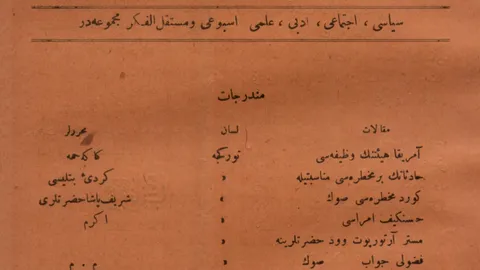 سیاسی ، اجتماعی ، ادبی ، علمی اسبوعی و مستقل الفکر مجموعه در
مندرجات
مقالات لسان محررلر
آمریقا هیئتنك وظیفه‌سی تورکجه کاکه حمه
حادثاتك بر مخطره‌سی مناسبتیله » کردیٔ بتلیسی
کورد مخطره‌سی صوك » شریف پاشا حضرتلری
حسنکیف امراسی » اکرم
مستر آرتور یوت وود حضرتلرینه »
فضولی جواب صوك » م . م